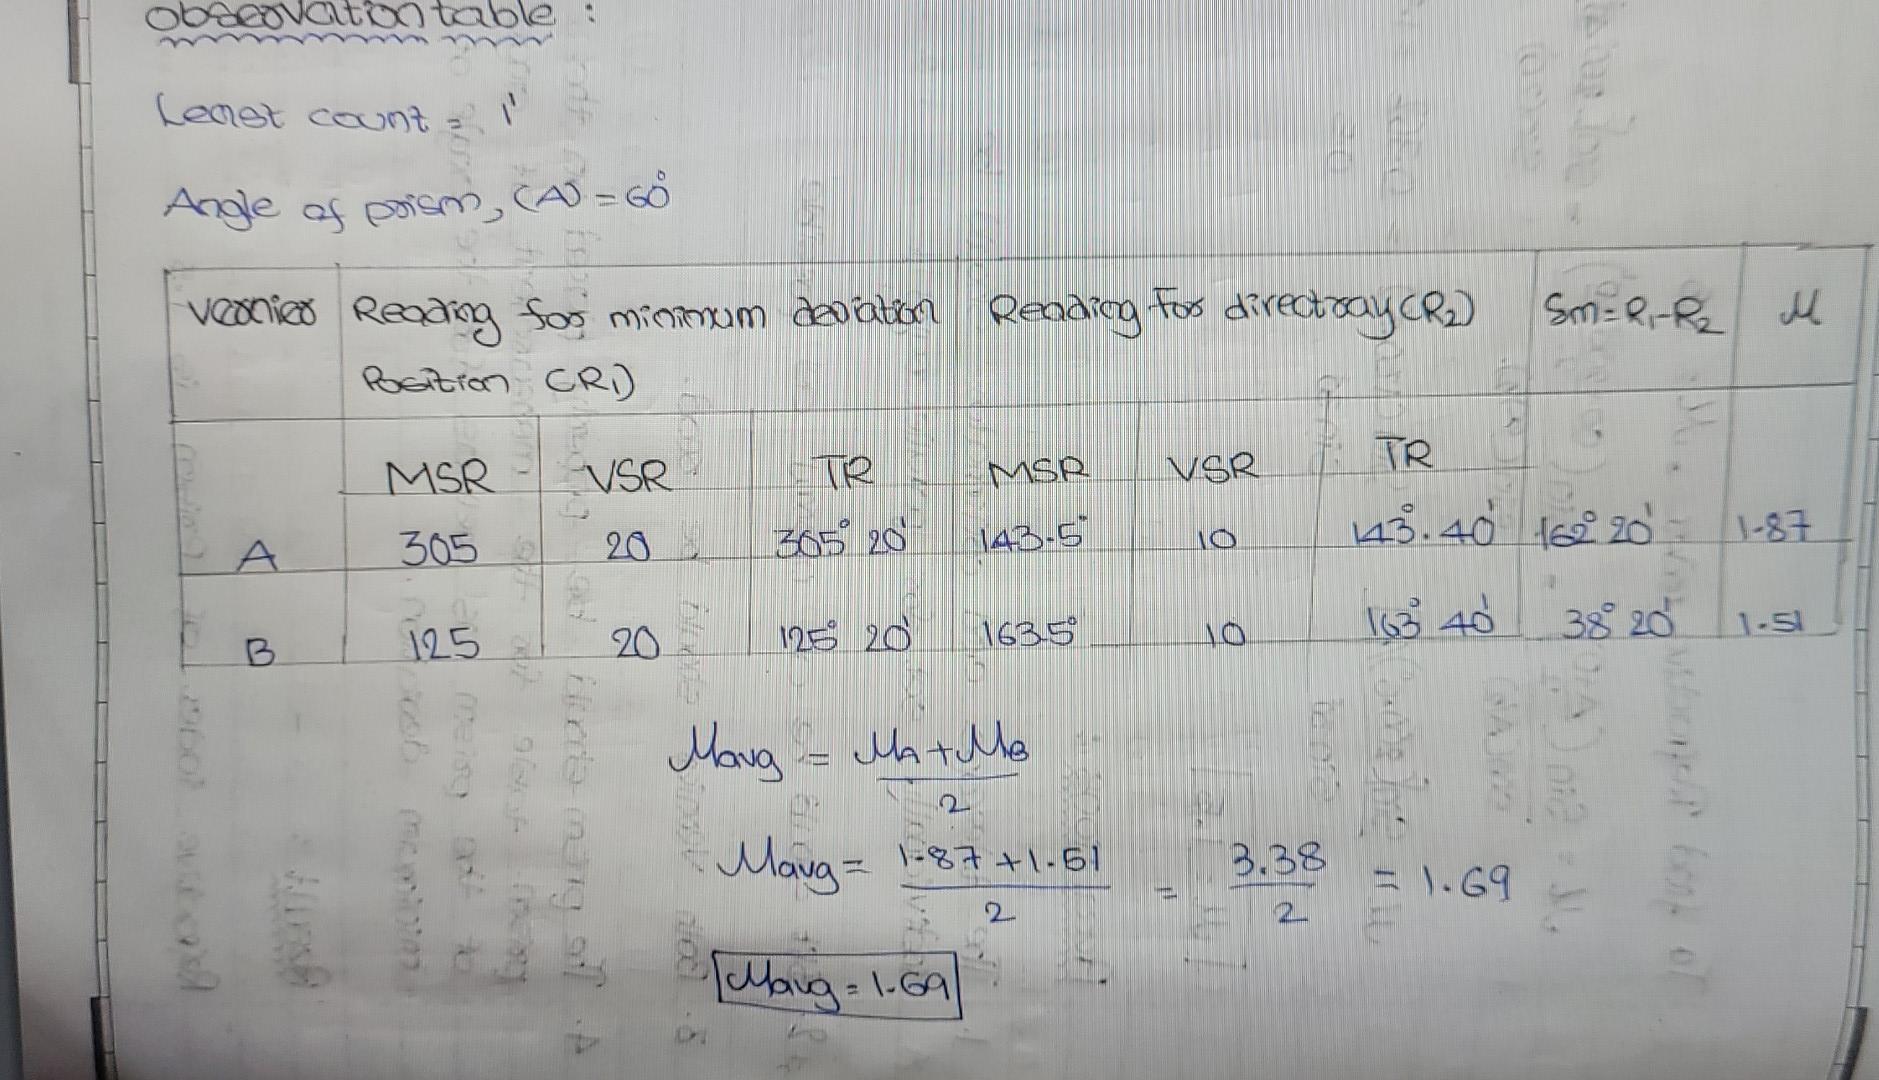 Observation table :
Least count = 1'
Angle of prism, (A) = 60°
Vernier Reading for minimum deviation Position (R1) Reading for direct ray (R2) Sm = R1-R2 μ
MSR VSR TR MSR VSR TR
A 305 20 305° 20' 143.5° 10 143°. 40' 162° 20' 1.87
B 125 20 125° 20' 163.5° 10 163° 40' 38° 20' 1.51
μavg = μA + μB / 2
μavg = 1.87 + 1.51 / 2 = 3.38 / 2 = 1.69
μavg = 1.69